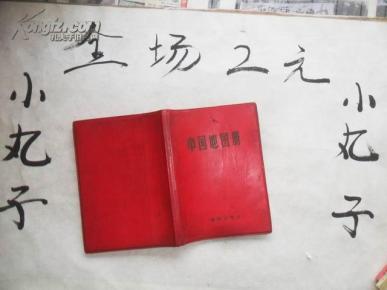 Kongfz.com
孔夫子旧书网
全场2元
小丸子
中国地图册
小丸子